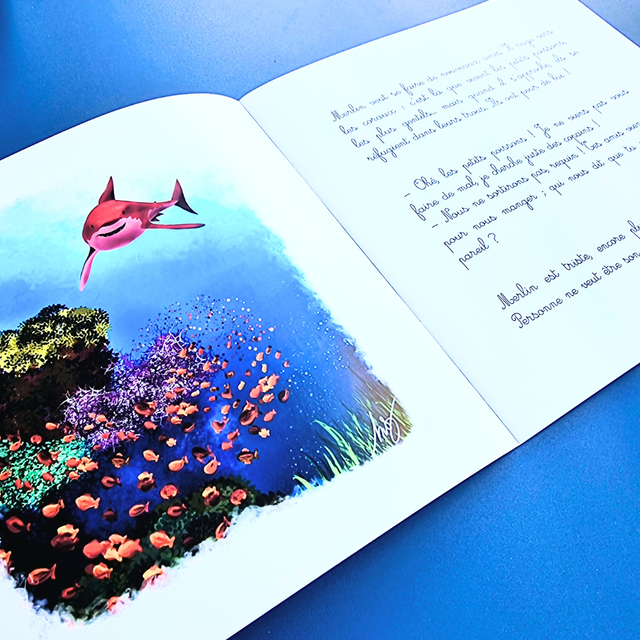 Merlin veut se faire de nouveaux amis. Il nage vers
les coraux ; c'est là que vivent les petits poissons
les plus gentils, mais quand il s'approche, ils se
réfugient dans leurs trous. Ils ont peur de lui !
- Ohé, les petits poissons ! Je ne veux pas vous
faire de mal, je cherche juste des copains !
- Nous ne sortirons pas requin ! Tes amis
pour nous manger ; qui nous dit que tu
pareil ?
Merlin est triste, encore
Personne ne veut être son